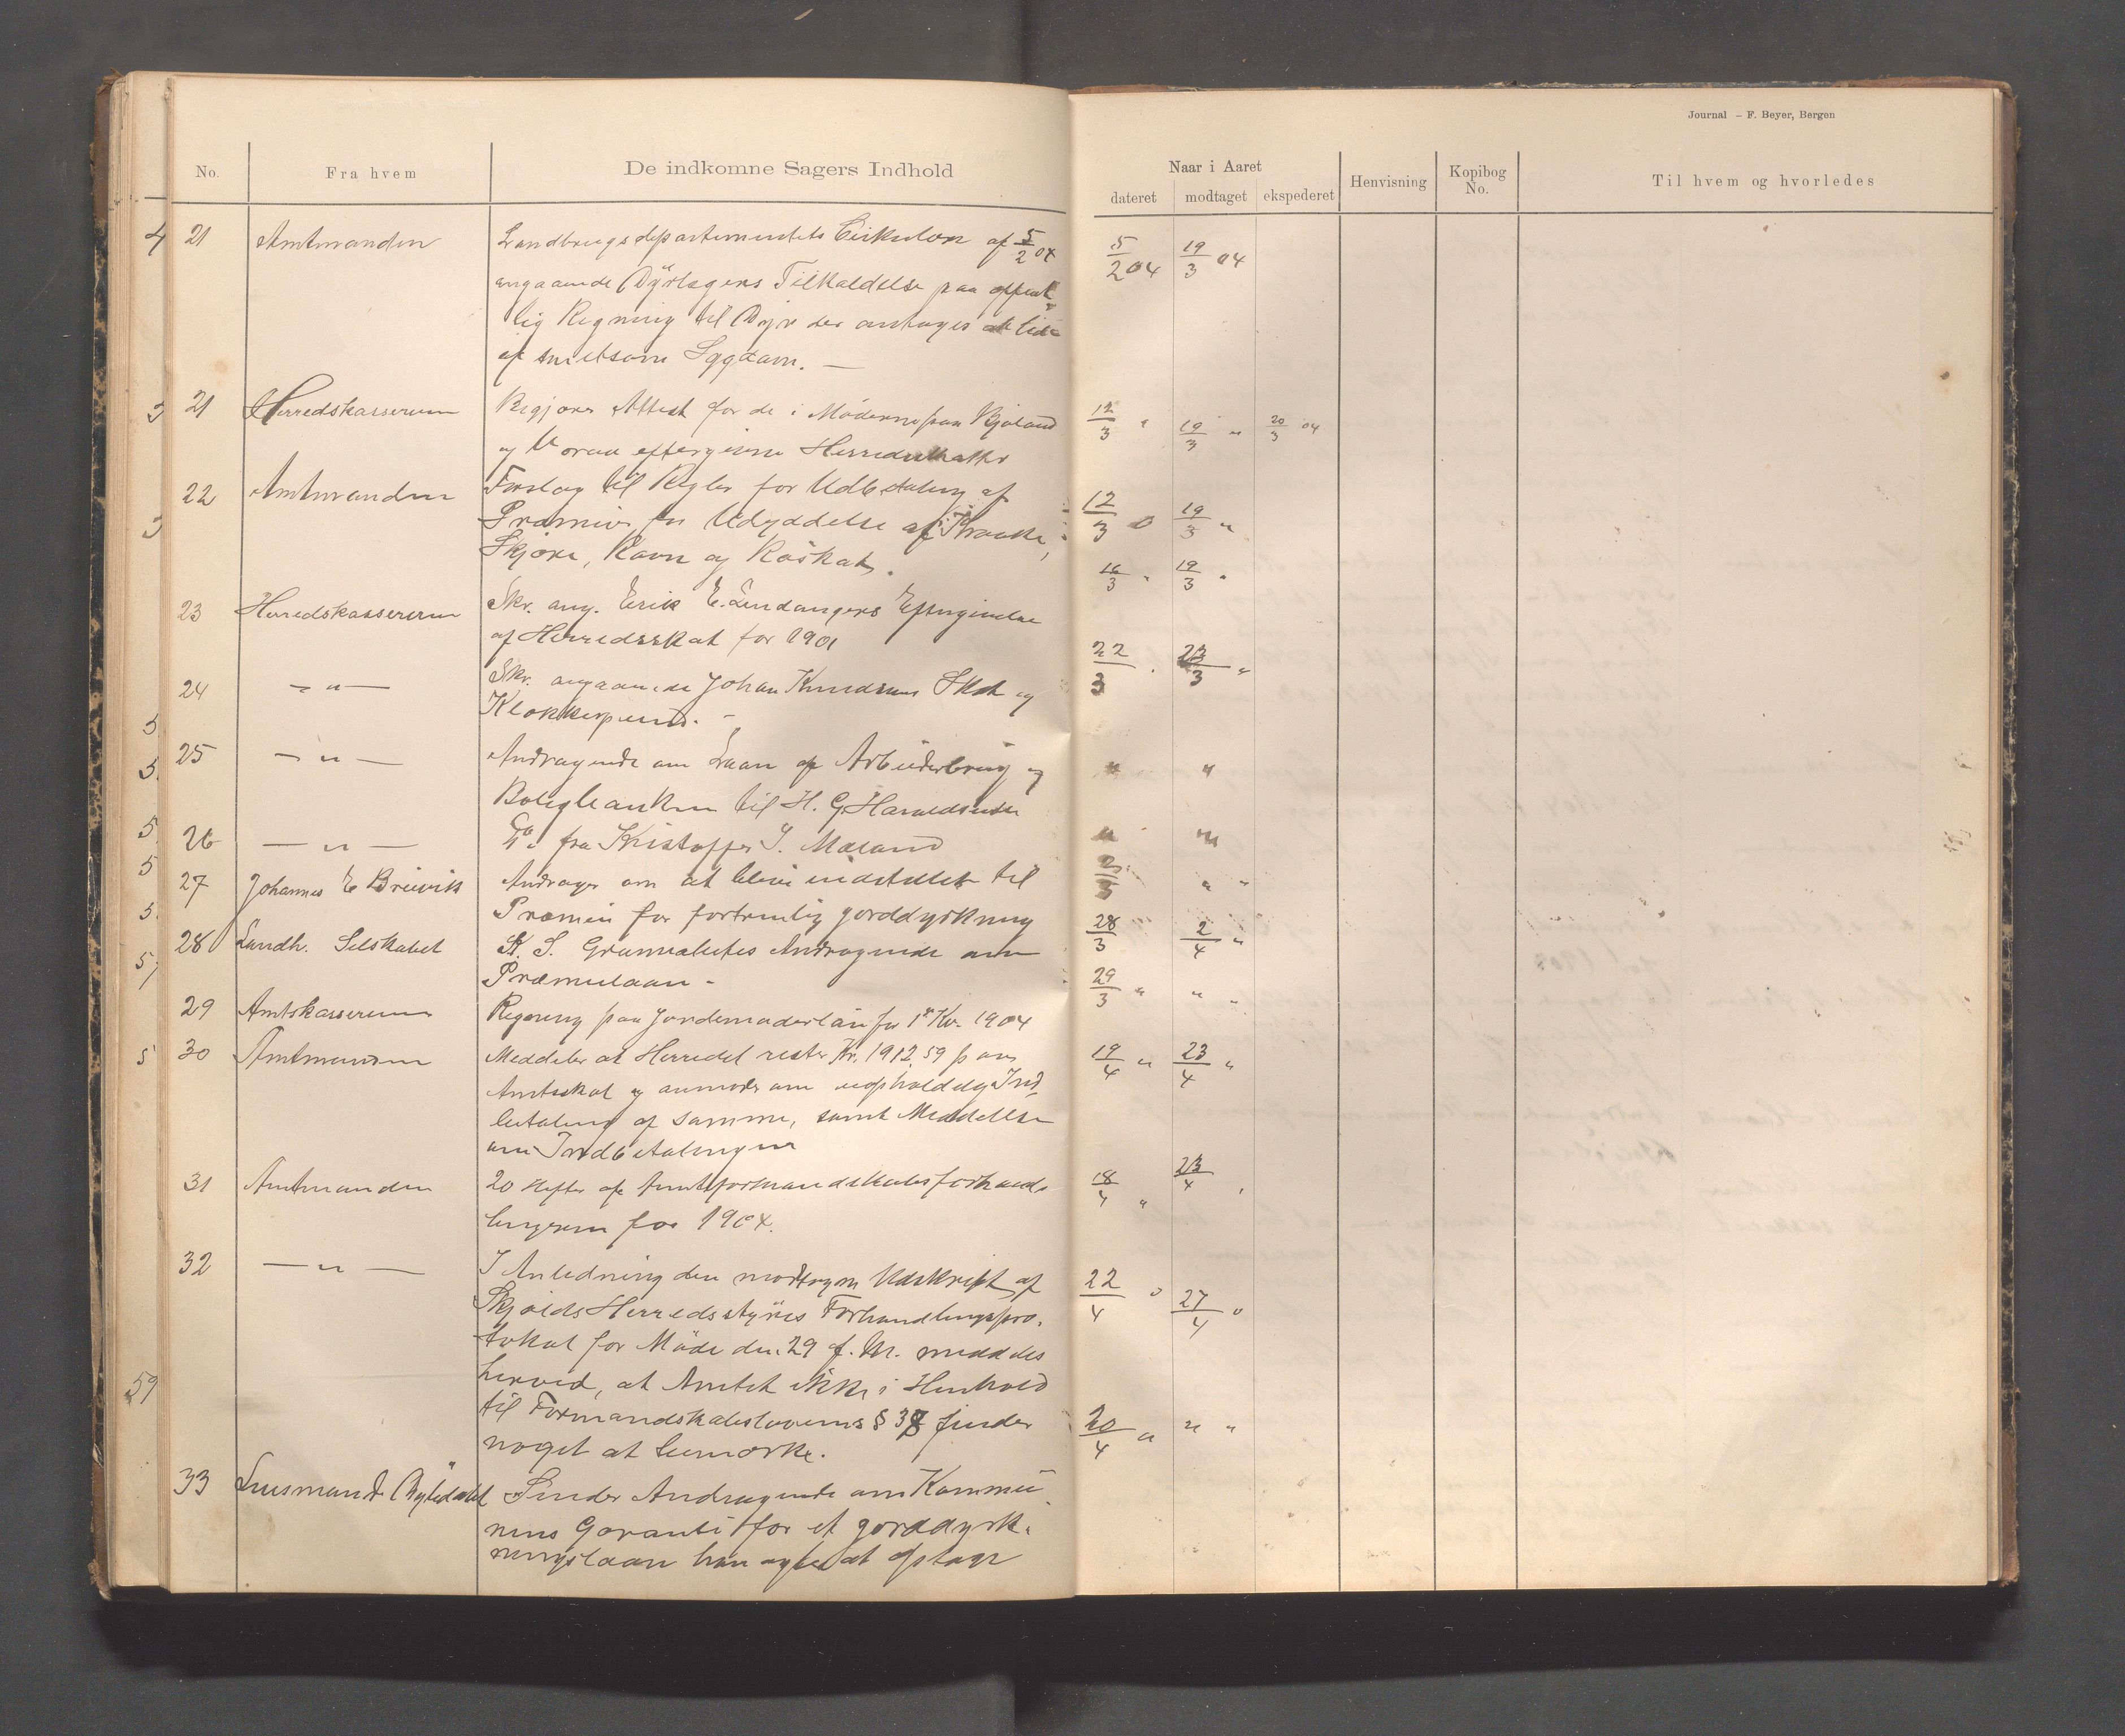 Journal – F. Beyer, Bergen
No. Fra hvem De indkomne Sagers Indhold Naar i Aaret Henvisning Kopibog No. Til hvem og hvorledes
dateret modtaget ekspederet
21 Amtmanden Landbrugsdepartementets Cirkulær af 5/2 04 5/2 04 19/3 04
angaaende Dyrlægers Tilkaldelse paa offent-
lig Regning til Dyr der antages at lide
af smitsom Sygdom. —
21 Herredskassereren Begjærer Attest for de i Møderne paa Bjoland 12/3 " 19/3 " 20/3 04
og eftergivne Herredsskatter
22 Amtmanden Forslag til Regler for Udbetaling af 12/3 " 19/3 "
Præmier for Udryddelse af Kraake,
Skjære, Ravn og Røskat.
23 Herredskassereren Skr. ang. Erik E. Lindangers Eftergivelse 16/3 " 19/3 "
af Herredsskat for 1901
24 — " — Skr. angaaende Johan Knudsens Skat og 22/3 " 23/3 "
Klokkerpund. –
25 — " — Andragende om Laan af Arbeiderbrug og " "
Boligbanken til H. G. Haraldseide
26 — " — Do fra Kristoffer I. Mæland " "
27 Johannes E Breivik Andrager om at blive indstillet til
Præmie for fortrinlig Jorddyrkning
28 Landh. Selskabet K. S. Andragende om 28/3 2/4 "
Præmielaan –
29 Amtskassereren Regning paa Jordemoderløn for 1ste Kv. 1904 29/3 " " "
30 Amtmanden Meddeler at Herredet rester Kr. 1912,59 paa 19/4 " 23/4 "
Amtsskat og anmoder om uopholdelig Ind-
betaling af samme, samt Meddelelse
om Indbetalingen
31 Amtmanden 20 Hefter af Amtsformandskabsforhand- 18/4 " 23/4 "
lingerne for 1904.
32 — " — I Anledning den modtagne Udskrift af 22/4 " 27/4 "
Skjolds Herredsstyres Forhandlingspro-
tokol for Møde den 29 f. M. meddeles
herved, at Amtet ikke i Henhold
til Formandskabslovens § 38 finder
noget at bemærke.
33 Lensmand Bylidal Sender Andragende om Kommu- 20/4 " " "
nens Garanti for et Jorddyrk-
ningslaan han agter at optage